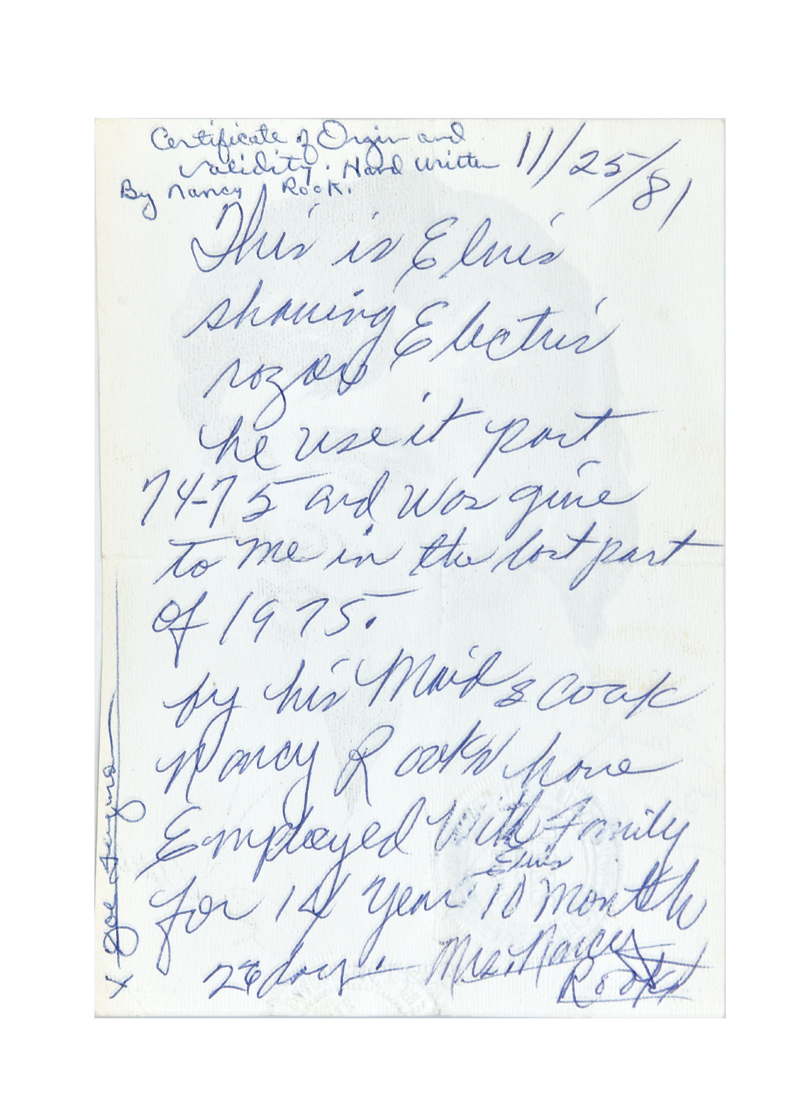 Certificate of Orgin and
Validity. Hand written
By Nancy Rook.
11/25/81
This is Elvis
shaving Electric
rozor
he use it part
74-75 and was give
to me in the last part
of 1975.
by his Maid & cook
Nancy Rooks have
Employed With Family
Elvis
for 14 year 10 month
26 day. Mrs. Nancy
Rooks
X Joe